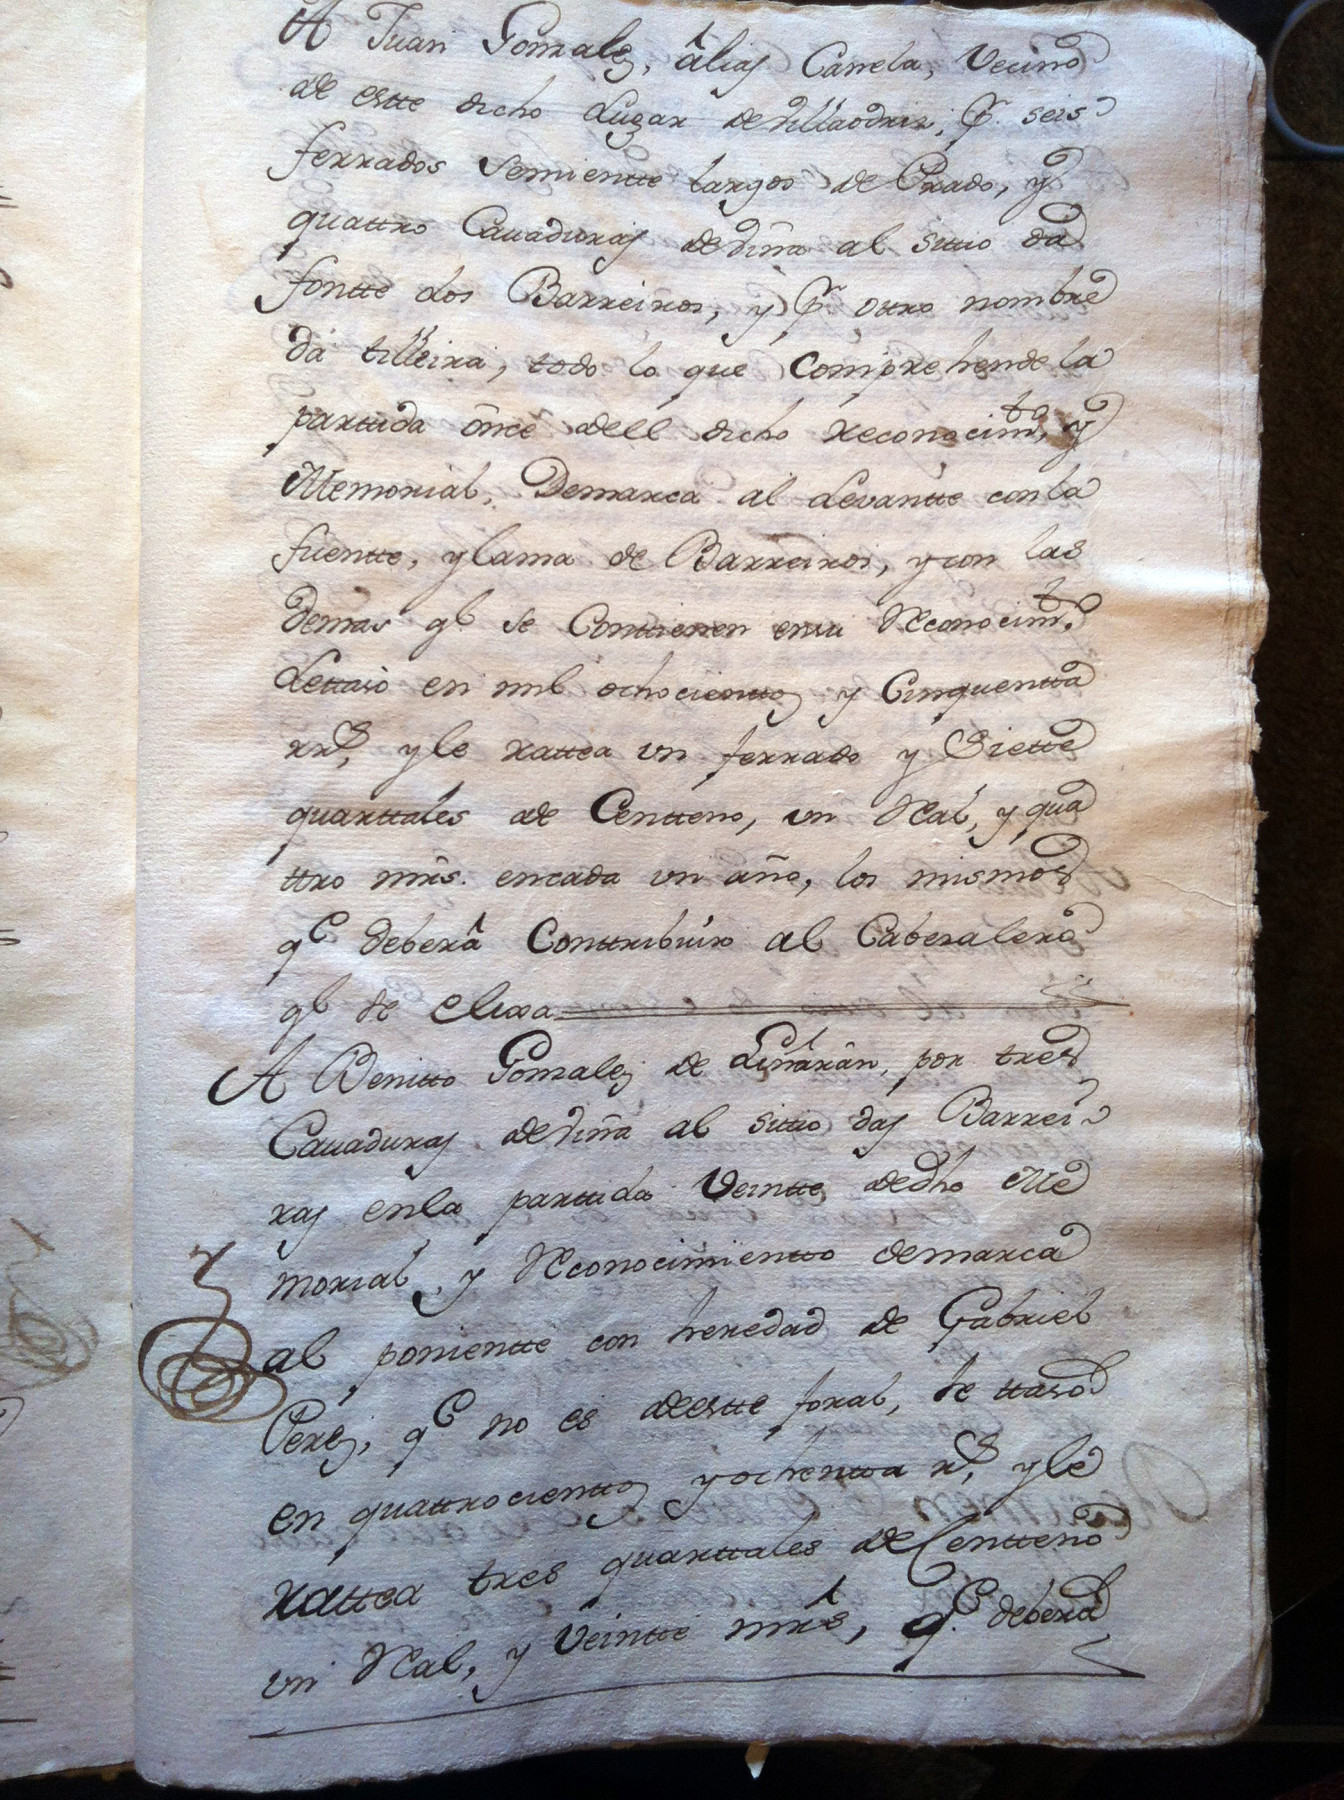 A Juan Gonzalez, âlias Canela, Vecino
de estte dicho Lugar de Villaodriz, Pr. seis
ferrados semientte largos de Prado, y
quattro Cauaduras de viña al sittio da
fontte dos Barreiros, y Pr. ottro nombre
da tilleira, todo lo que Comprehende la
parttida ônce dell dicho reconocimto, y
Memorial, Demarca al Levantte con la
fuentte, y lama de Barreiros, y con las
demas qe se Conttienen en su Reconocimto.
Settasò en mil ochocienttos y Cinquentta
rrs, y le rattea un ferrado y Siette
quarttales de Centteno, un Real, y qua
ttro mrs. en cada un año, los mismos
qe deberâ Conttribuir al Cabezalero
qe se elixa
A Benitto Gonzalez de Liñarân, por tres
Cauaduras de viña al sittio das Barrei
ras en la parttida Veintte de dho Me
morial, y Reconocimientto demarca
al ponientte con heredad de Gabriel
Perez, qe no es de estte foral, se ttasò
en quattrocienttos y ochentta rs, y le
rattea tres quarttales de Centteno
un Real, y Veintte mrs, qe. deberâ